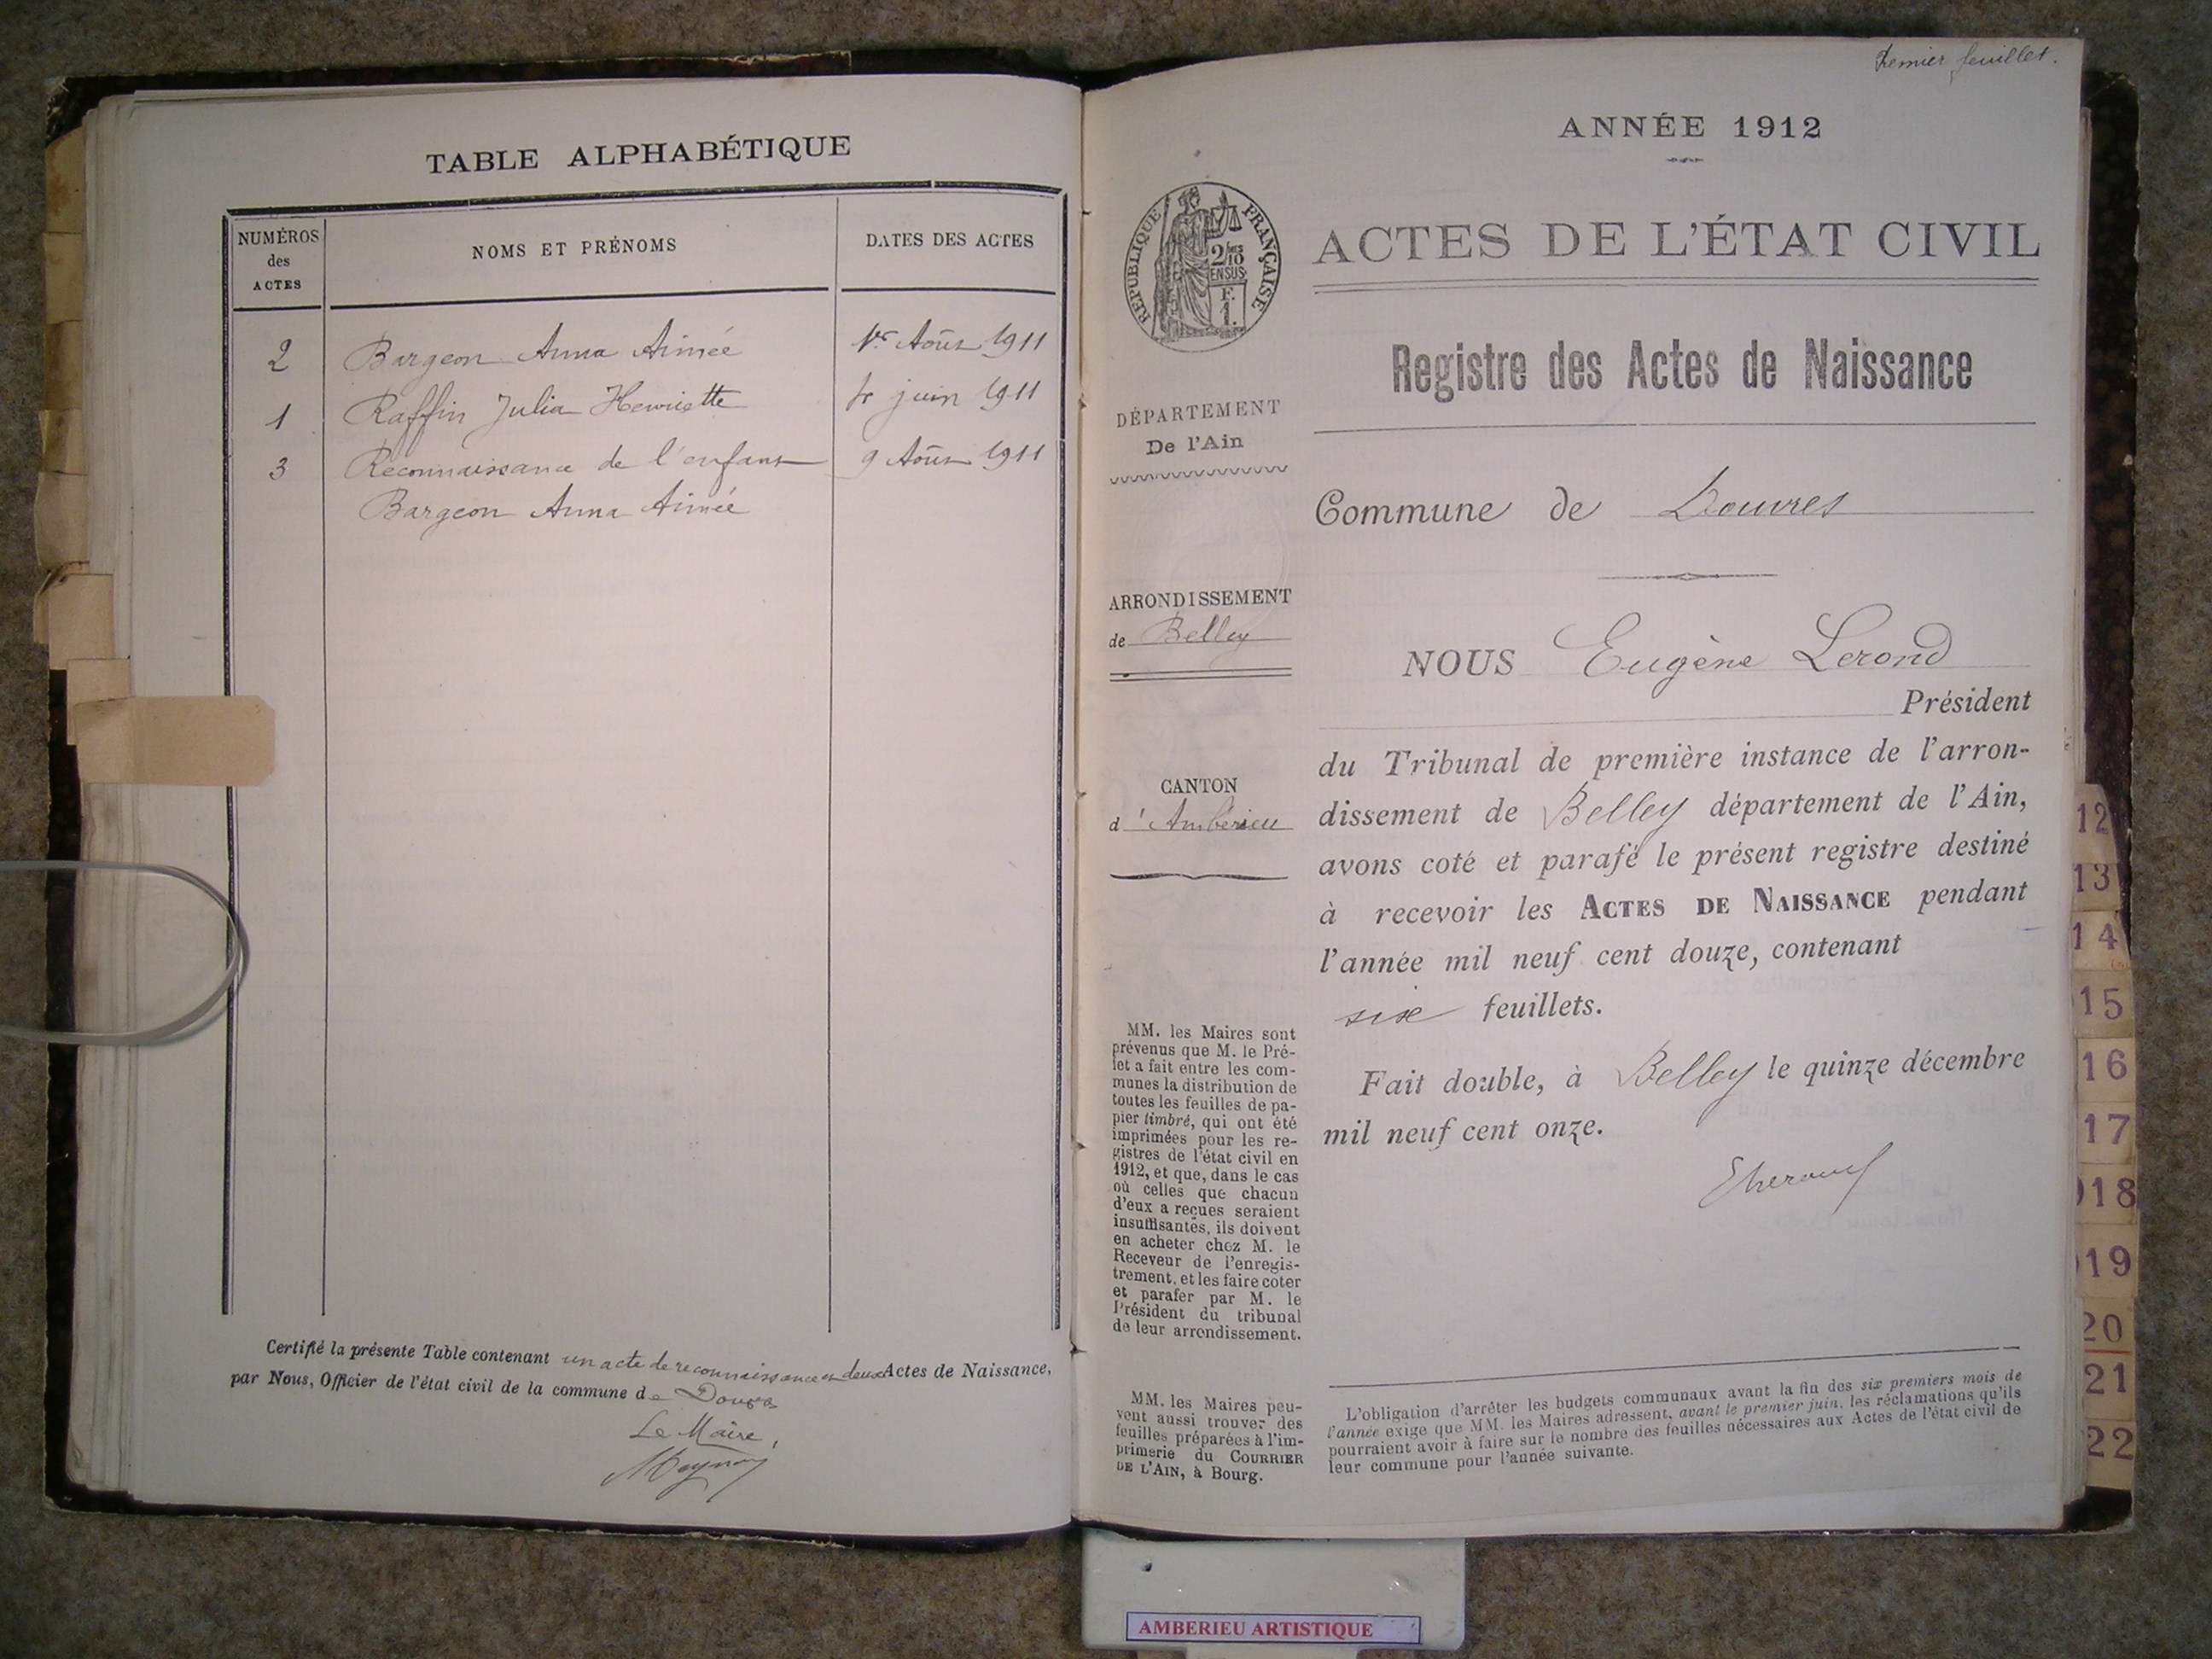 TABLE ALPHABÉTIQUE
NUMÉROS
des
ACTES
NOMS ET PRÉNOMS
DATES DES ACTES
2 Bargeon Anna Aimée 1er Août 1911
1 Raffin Julia Henriette juin 1911
3 Reconnaissance de l'enfant 9 Août 1911
Bargeon Anna Aimée
Certifié la présente Table contenant un acte de reconnaissance et deux Actes de Naissance,
par Nous, Officier de l'état civil de la commune de Douvres
Le Maire,
Premier feuillet.
ANNÉE 1912
RÉPUBLIQUE FRANÇAISE
2/10
EN SUS
F.
1.
ACTES DE L'ÉTAT CIVIL
Registre des Actes de Naissance
DÉPARTEMENT
De l'Ain
Commune de Douvres
ARRONDISSEMENT
de Belley
CANTON
d'Ambérieu
NOUS Eugène Lerond
Président
du Tribunal de première instance de l'arron-
dissement de Belley département de l'Ain,
avons coté et parafé le présent registre destiné
à recevoir les ACTES DE NAISSANCE pendant
l'année mil neuf cent douze, contenant
six feuillets.
Fait double, à Belley le quinze décembre
mil neuf cent onze.
MM. les Maires sont
prévenus que M. le Pré-
fet a fait entre les com-
munes la distribution de
toutes les feuilles de pa-
pier timbré, qui ont été
imprimées pour les re-
gistres de l'état civil en
1912, et que, dans le cas
où celles que chacun
d'eux a reçues seraient
insuffisantes, ils doivent
en acheter chez M. le
Receveur de l'enregis-
trement, et les faire coter
et parafer par M. le
Président du tribunal
de leur arrondissement.
MM. les Maires peu-
vent aussi trouver des
feuilles préparées à l'im-
primerie du COURRIER
DE L'AIN, à Bourg.
L'obligation d'arrêter les budgets communaux avant la fin des six premiers mois de
l'année exige que MM. les Maires adressent, avant le premier juin, les réclamations qu'ils
pourraient avoir à faire sur le nombre des feuilles nécessaires aux Actes de l'état civil de
leur commune pour l'année suivante.
12
13
14
15
16
17
18
19
20
21
22
AMBERIEU ARTISTIQUE